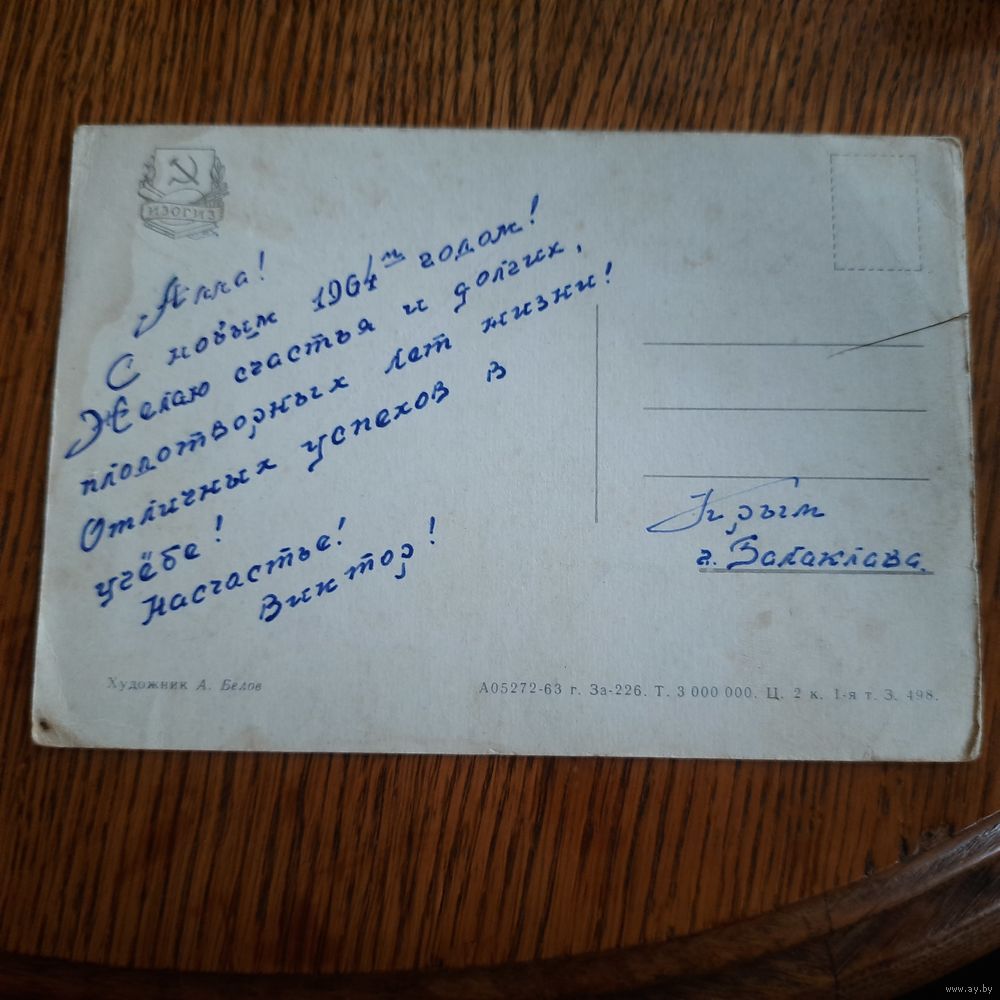 ИЗОГИЗ
Алла!
С новым 1964м годом!
Желаю счастья и долгих,
плодотворных лет жизни!
Отличных успехов в
учёбе!
Насчастье!
Виктор!
Крым
г. Балаклава.
Художник А. Белов
А05272-63 г. За-226. Т. 3 000 000. Ц. 2 к. 1-я т. З. 498.
www.ay.by